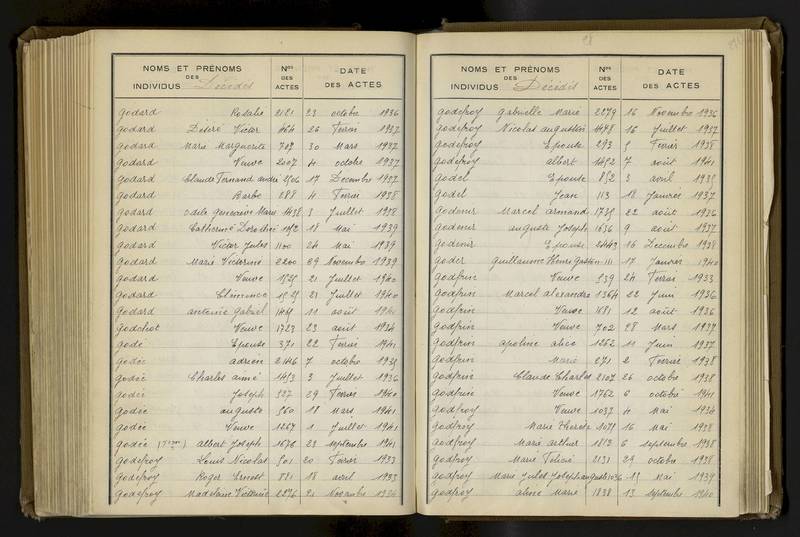 NOMS ET PRÉNOMS DES INDIVIDUS Décédés Nos DES ACTES DATE DES ACTES
Godard Rosalie 2181 23 octobre 1936
Godard Désiré Victor 464 26 Février 1937
Godard Marie Marguerite 707 30 Mars 1937
Godard Veuve 2007 4 octobre 1937
Godard Claude Fernand andré 2506 17 Décembre 1937
Godard Barbe 288 4 Février 1938
Godard odile geneviève Marie 1438 3 Juillet 1938
Godard Catherine Dorothée 18 Mai 1939
Godard Victor Jules 1100 24 Mai 1939
Godard Marie Victorine 2200 29 Novembre 1939
Godard Veuve 1525 21 Juillet 1940
Godard Clémence 1525 21 Juillet 1940
Godard antoine gabriel 11 août 1941
Godchot Veuve 1723 23 août 1934
Godé Epouse 371 22 Février 1941
Godée adrien 2146 7 octobre 1935
Godée Charles aimé 1453 3 Juillet 1936
Godée Joseph 527 29 Février 1940
Godée auguste 560 18 Mars 1941
Godée Veuve 1267 1 Juillet 1941
Godée albert Joseph 1676 23 septembre 1941
Godefroy Louis Nicolas 501 20 Février 1933
Godefroy Roger Ernest 881 18 avril 1933
Godefroy Madeleine Victorine 2276 21 Novembre 1934
NOMS ET PRÉNOMS DES INDIVIDUS Décédés Nos DES ACTES DATE DES ACTES
Godefroy Gabrielle Marie 2279 16 Novembre 1936
Godefroy Nicolas augustin 1478 16 Juillet 1937
Godefroy Epouse 293 5 Février 1938
Godefroy albert 1452 7 août 1941
Godel Epouse 852 3 avril 1935
Godel Jean 113 18 Janvier 1937
Godenir Marcel armand 1735 22 août 1936
Godenir auguste Joseph 1636 9 août 1937
Godenir Epouse 2443 16 Décembre 1938
Goder guillaume Henri gaston 111 17 Janvier 1940
Godfrin Veuve 539 24 Février 1933
Godfrin Marcel alexandre 1364 22 Juin 1936
Godfrin Veuve 1681 12 août 1936
Godfrin Veuve 702 28 Mars 1937
Godfrin apoline alice 1262 11 Juin 1937
Godfrin Marie 271 2 Février 1938
Godfrin Claude Charles 2107 26 octobre 1938
Godfrin Veuve 1762 6 octobre 1941
Godfroy Veuve 1037 4 Mai 1934
Godfroy Marie Thérèse 1071 16 Mai 1938
Godfroy Marie arthur 1812 6 septembre 1938
Godfroy Marie Félicie 2131 29 octobre 1938
Godfroy Marie Juliet Joseph auguste 1036 15 Mai 1939
Godfroy aline Marie 1838 13 septembre 1940